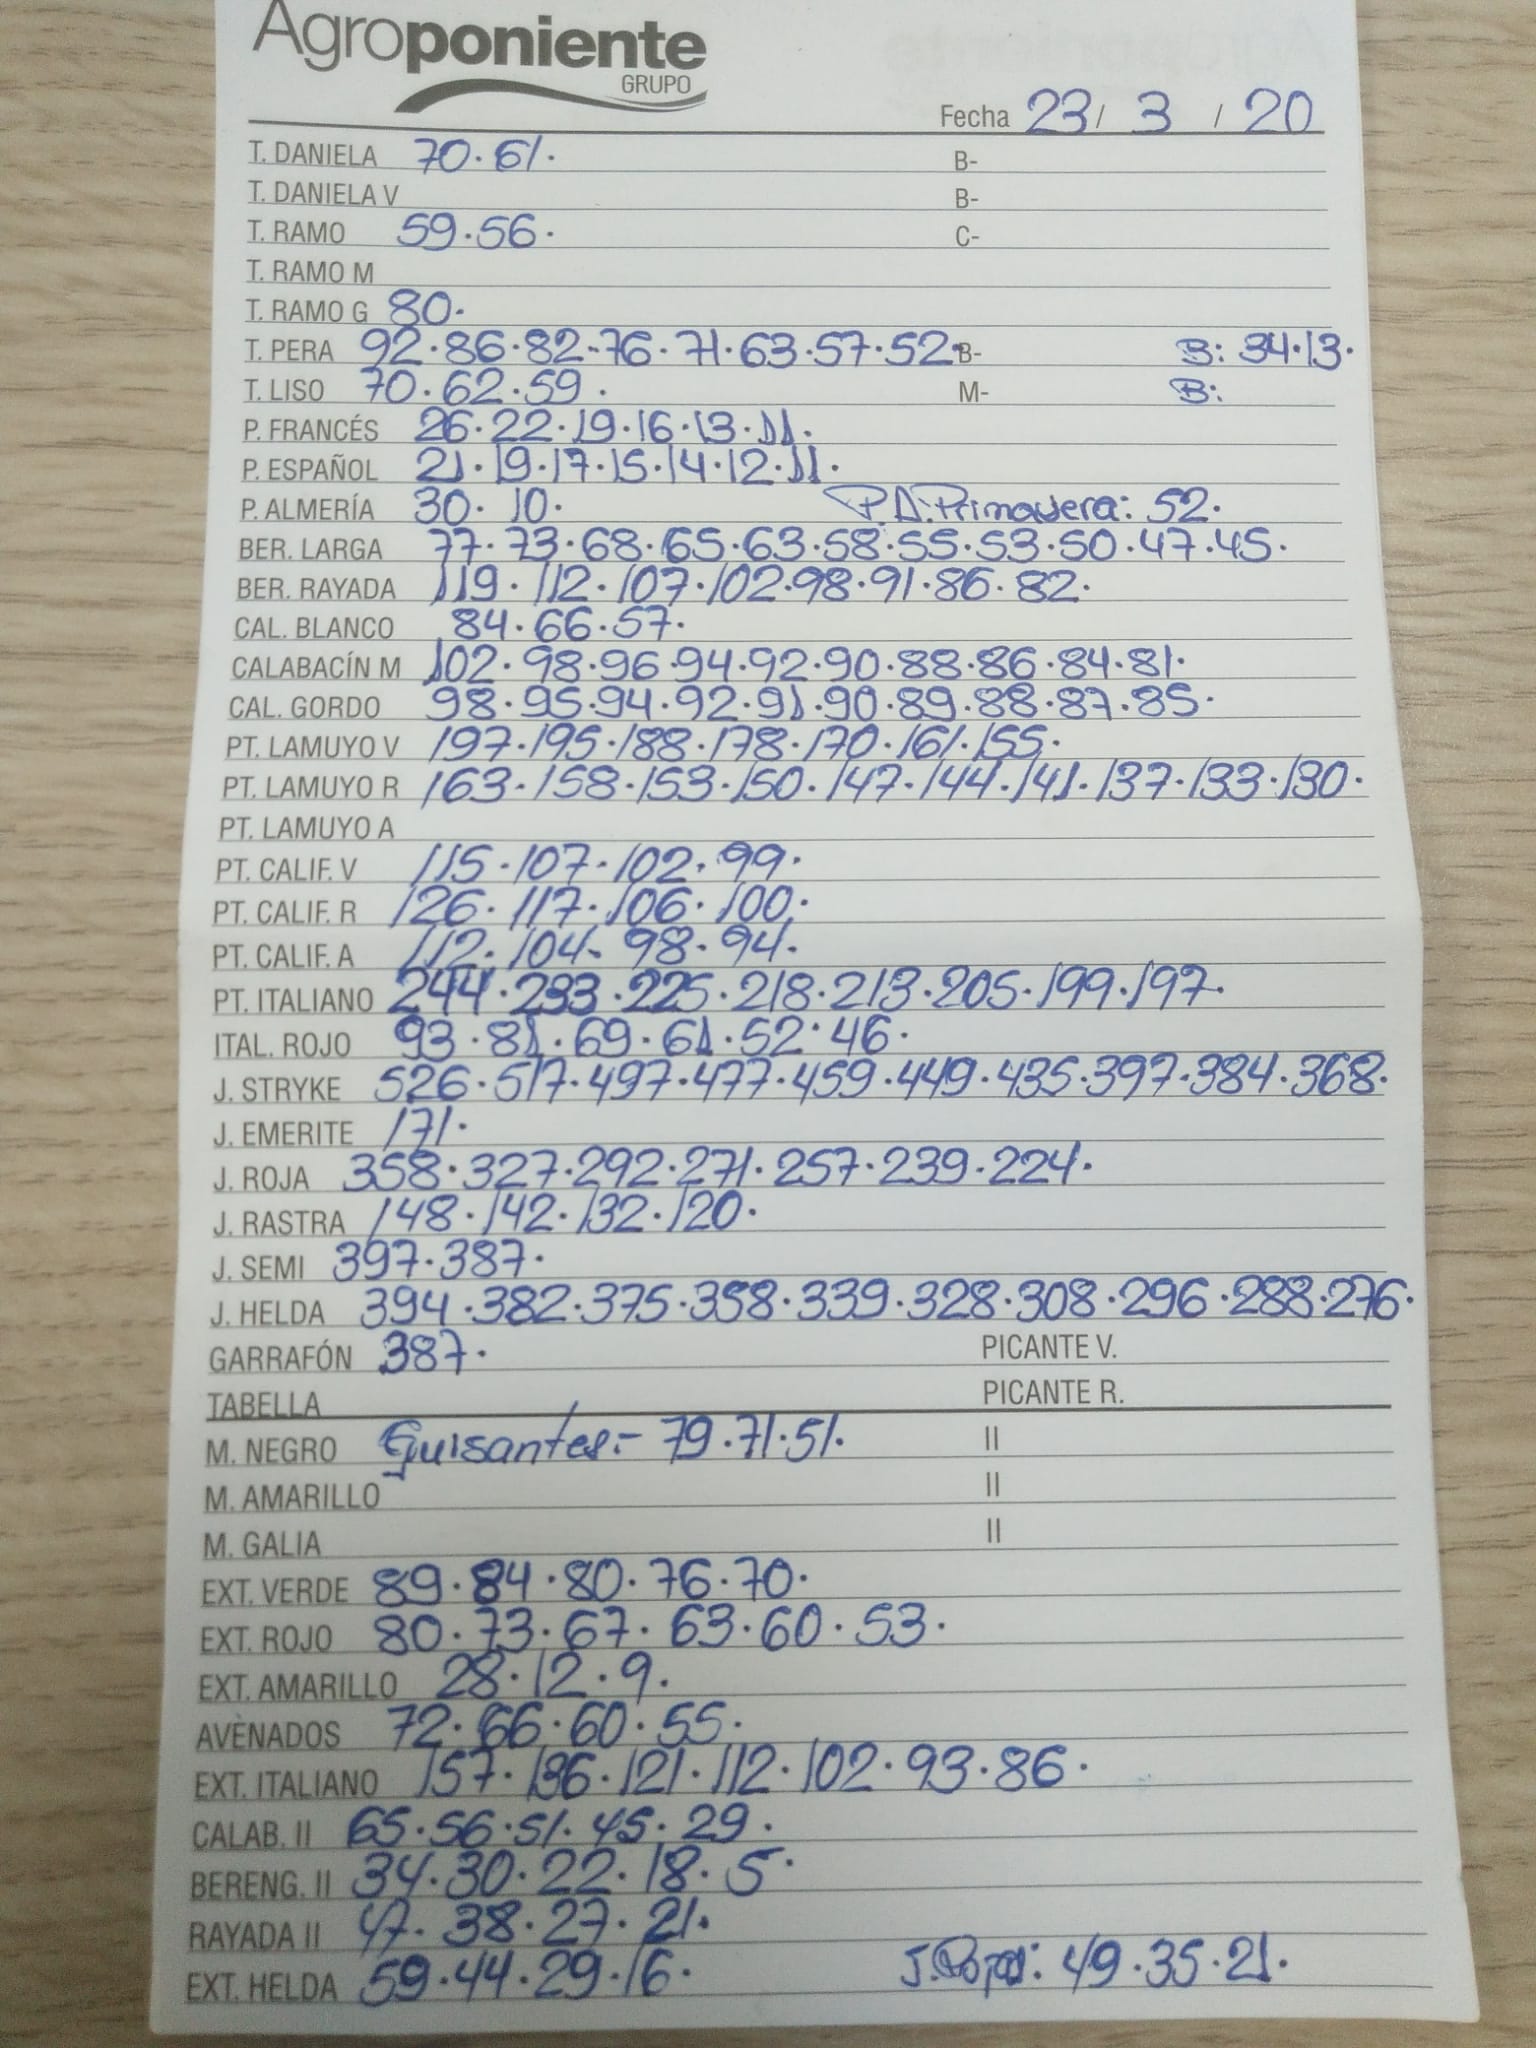 Agroponiente
GRUPO
Fecha 23 / 3 / 20
T. DANIELA 70.61. B-
T. DANIELA V B-
T. RAMO 59.56. C-
T. RAMO M
T. RAMO G 80.
T. PERA 92.86.82-76.71.63.57.52. B- B: 34.13.
T. LISO 70.62.59. M- B:
P. FRANCÉS 26.22.19.16.13.11.
P. ESPAÑOL 21.19.17.15.14.12.11.
P. ALMERÍA 30. 10. P.A. Primavera: 52.
BER. LARGA 77.73.68.65.63.58.55.53.50.47.45.
BER. RAYADA 119.112.107.102.98.91.86.82.
CAL. BLANCO 84.66.57.
CALABACÍN M 102.98.96.94.92.90.88.86.84.81.
CAL. GORDO 98.95.94.92.91.90.89.88.87.85.
PT. LAMUYO V 197.195.188.178.170.161.155.
PT. LAMUYO R 163.158.153.150.147.144.141.137.133.130.
PT. LAMUYO A
PT. CALIF. V 115.107.102.99.
PT. CALIF. R 126.117.106.100.
PT. CALIF. A 112.104.98.94.
PT. ITALIANO 244.233.225.218.213.205.199.197.
ITAL. ROJO 93.81.69.61.52.46.
J. STRYKE 526.517.497.477.459.449.435.397.384.368.
J. EMERITE 171.
J. ROJA 358.327.292.271.257.239.224.
J. RASTRA 148.142.132.120.
J. SEMI 397.387.
J. HELDA 394.382.375.358.339.328.308.296.288.276.
GARRAFÓN 387. PICANTE V.
TABELLA PICANTE R.
M. NEGRO Guisantes:- 79.71.51. II
M. AMARILLO II
M. GALIA II
EXT. VERDE 89.84.80.76.70.
EXT. ROJO 80.73.67.63.60.53.
EXT. AMARILLO 28.12.9.
AVENADOS 72.66.60.55.
EXT. ITALIANO 157.136.121.112.102.93.86.
CALAB. II 65.56.51.45.29.
BERENG. II 34.30.22.18.5.
RAYADA II 47.38.27.21.
EXT. HELDA 59.44.29.16. 49.35.21.